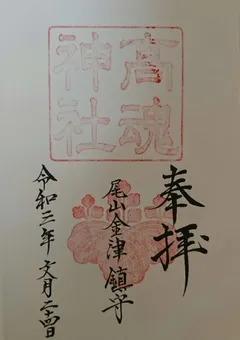 高魂
神社
奉拝
尾山金津 鎮守
令和三年 文月二十四日